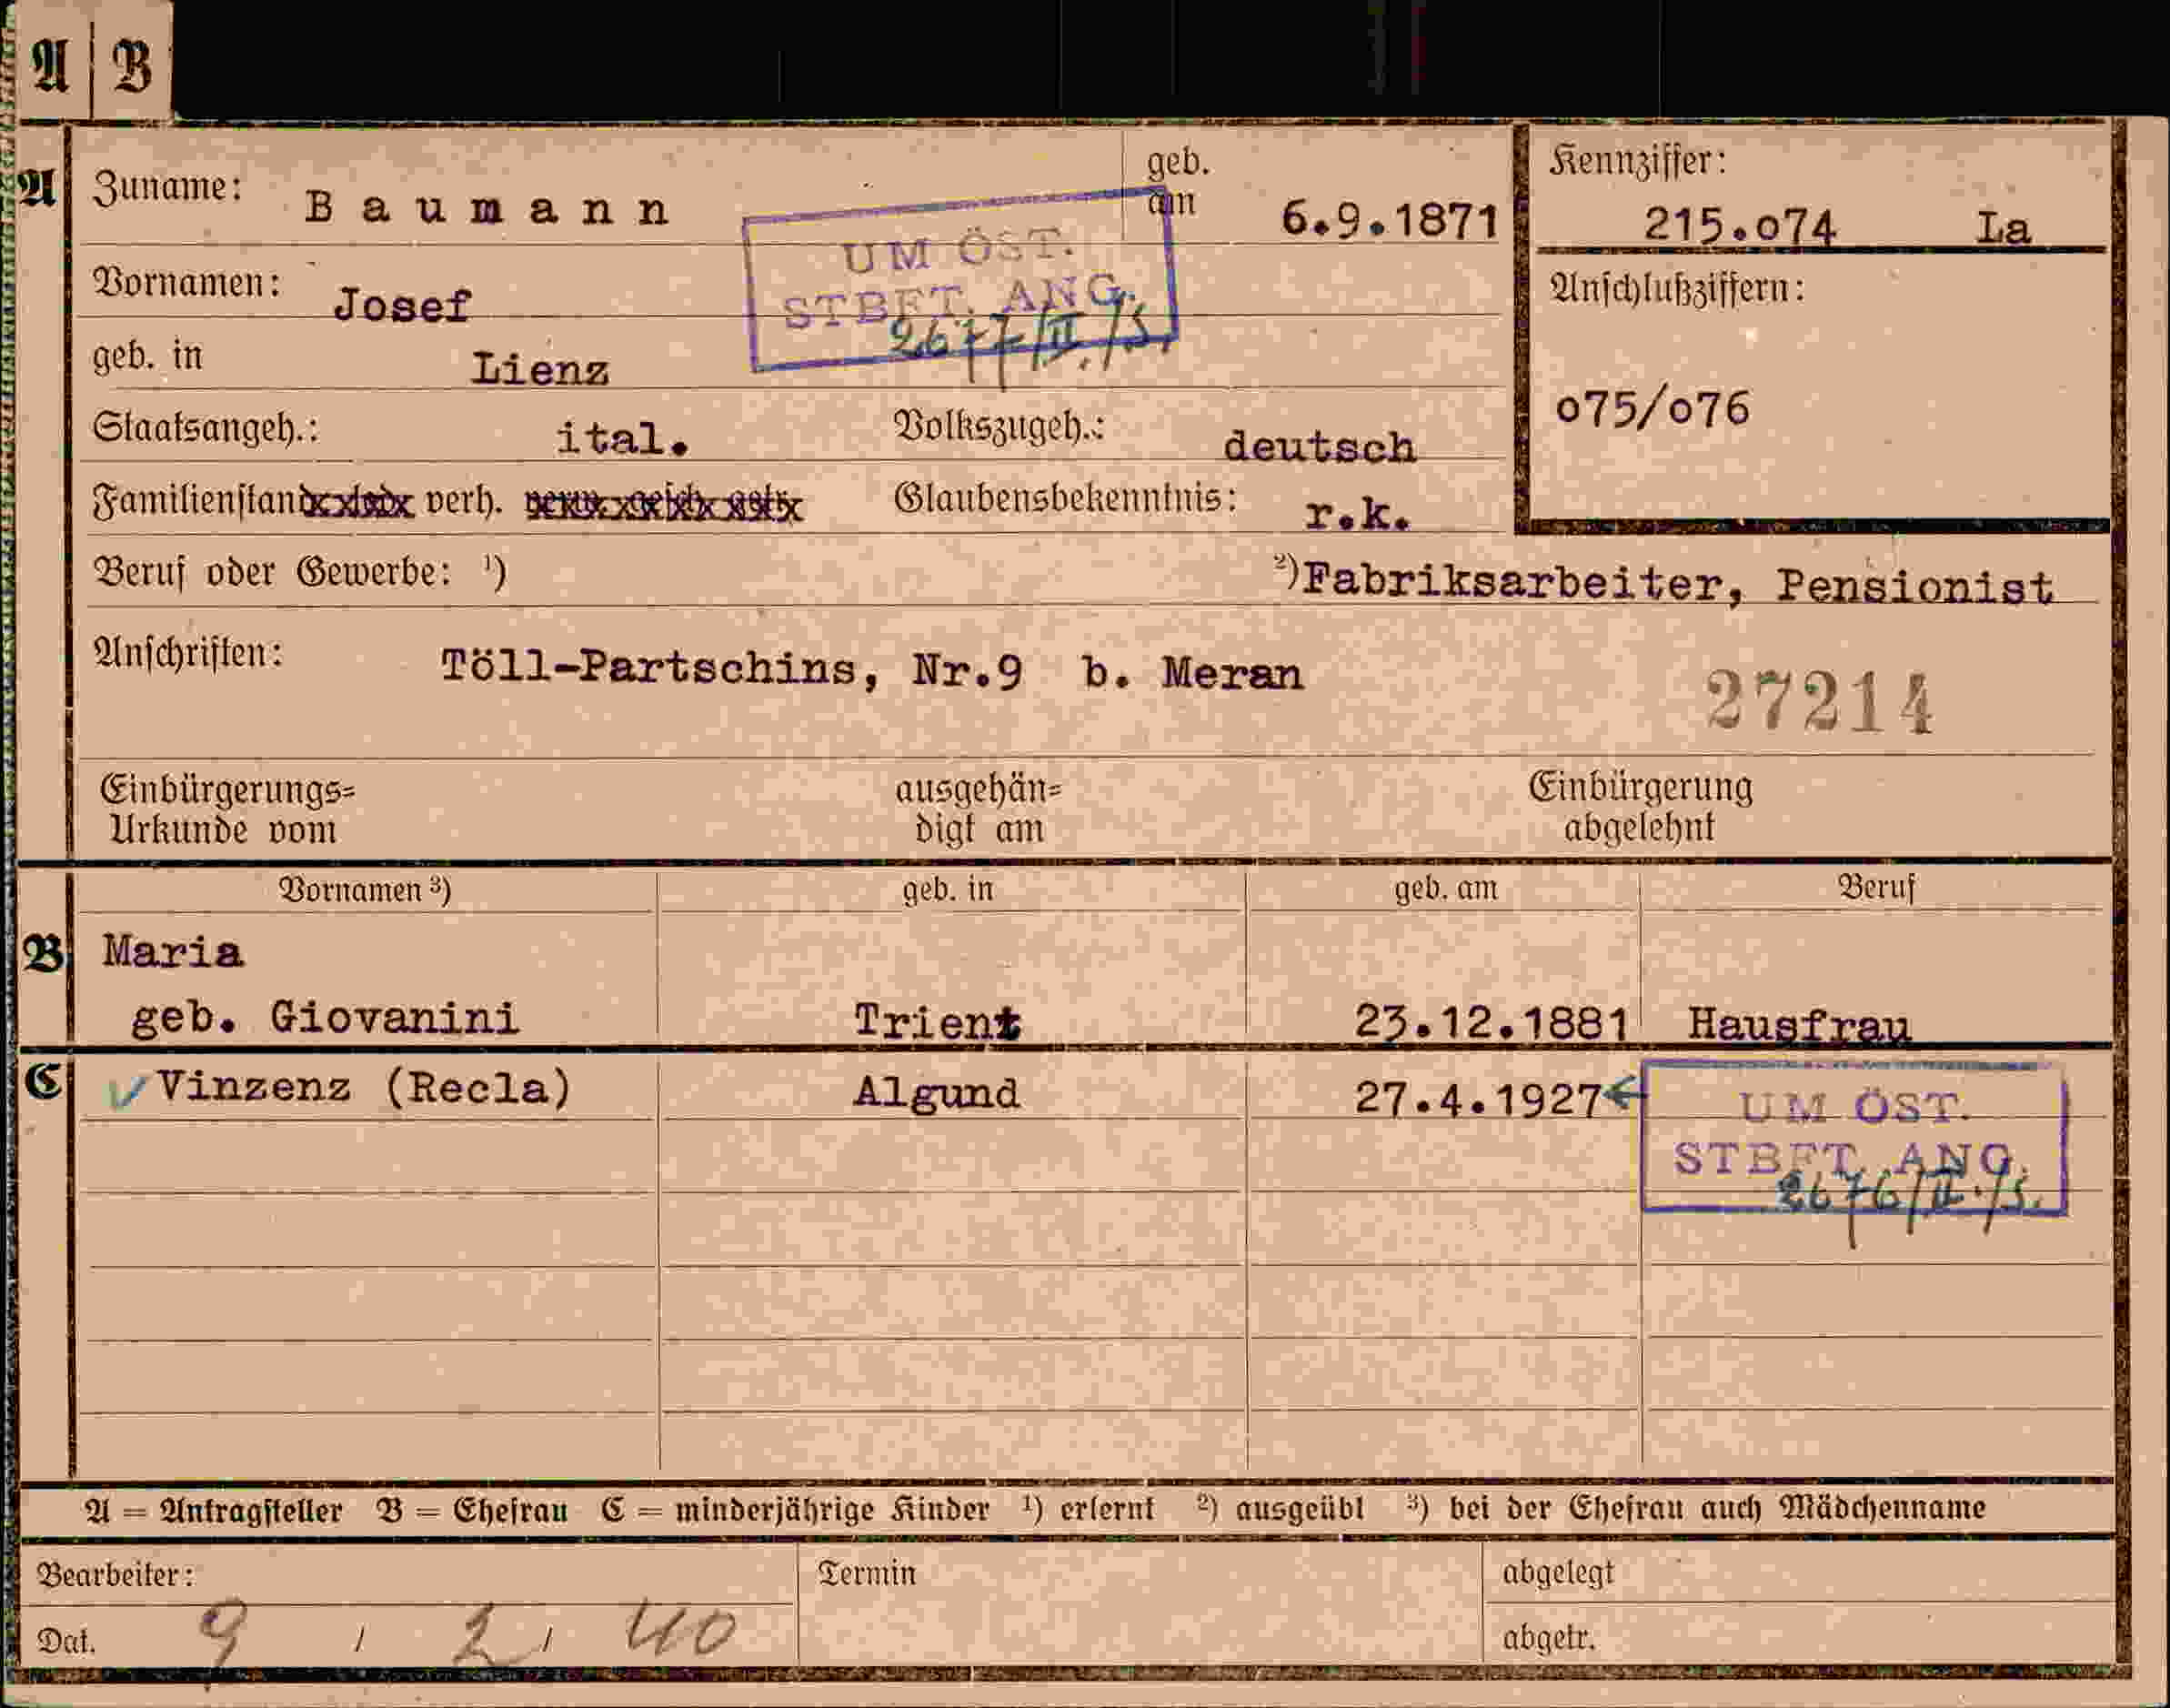 A | B
A Zuname: Baumann geb. am 6.9.1871 Kennziffer: 215.o74 La
UM ÖST.
STBFT. ANG.
2677/II./S.
Vornamen: Josef Anschlußziffern:
geb. in Lienz o75/o76
Staatsangeh.: ital. Volkszugeh.: deutsch
Familienstand verh. Glaubensbekenntnis: r.k.
Beruf oder Gewerbe: ¹) ²)Fabriksarbeiter, Pensionist
Anschriften: Töll-Partschins, Nr.9 b. Meran
27214
Einbürgerungs= ausgehän= Einbürgerung
Urkunde vom digt am abgelehnt
Vornamen ³) geb. in geb. am Beruf
B Maria
geb. Giovanini Trient 23.12.1881 Hausfrau
C Vinzenz (Recla) Algund 27.4.1927
UM ÖST.
STBFT. ANG.
2676/II./S.
A = Antragsteller B = Ehefrau C = minderjährige Kinder ¹) erlernt ²) ausgeübt ³) bei der Ehefrau auch Mädchenname
Bearbeiter: Termin abgelegt
Dat. 9 / 2 / 40 abgetr.